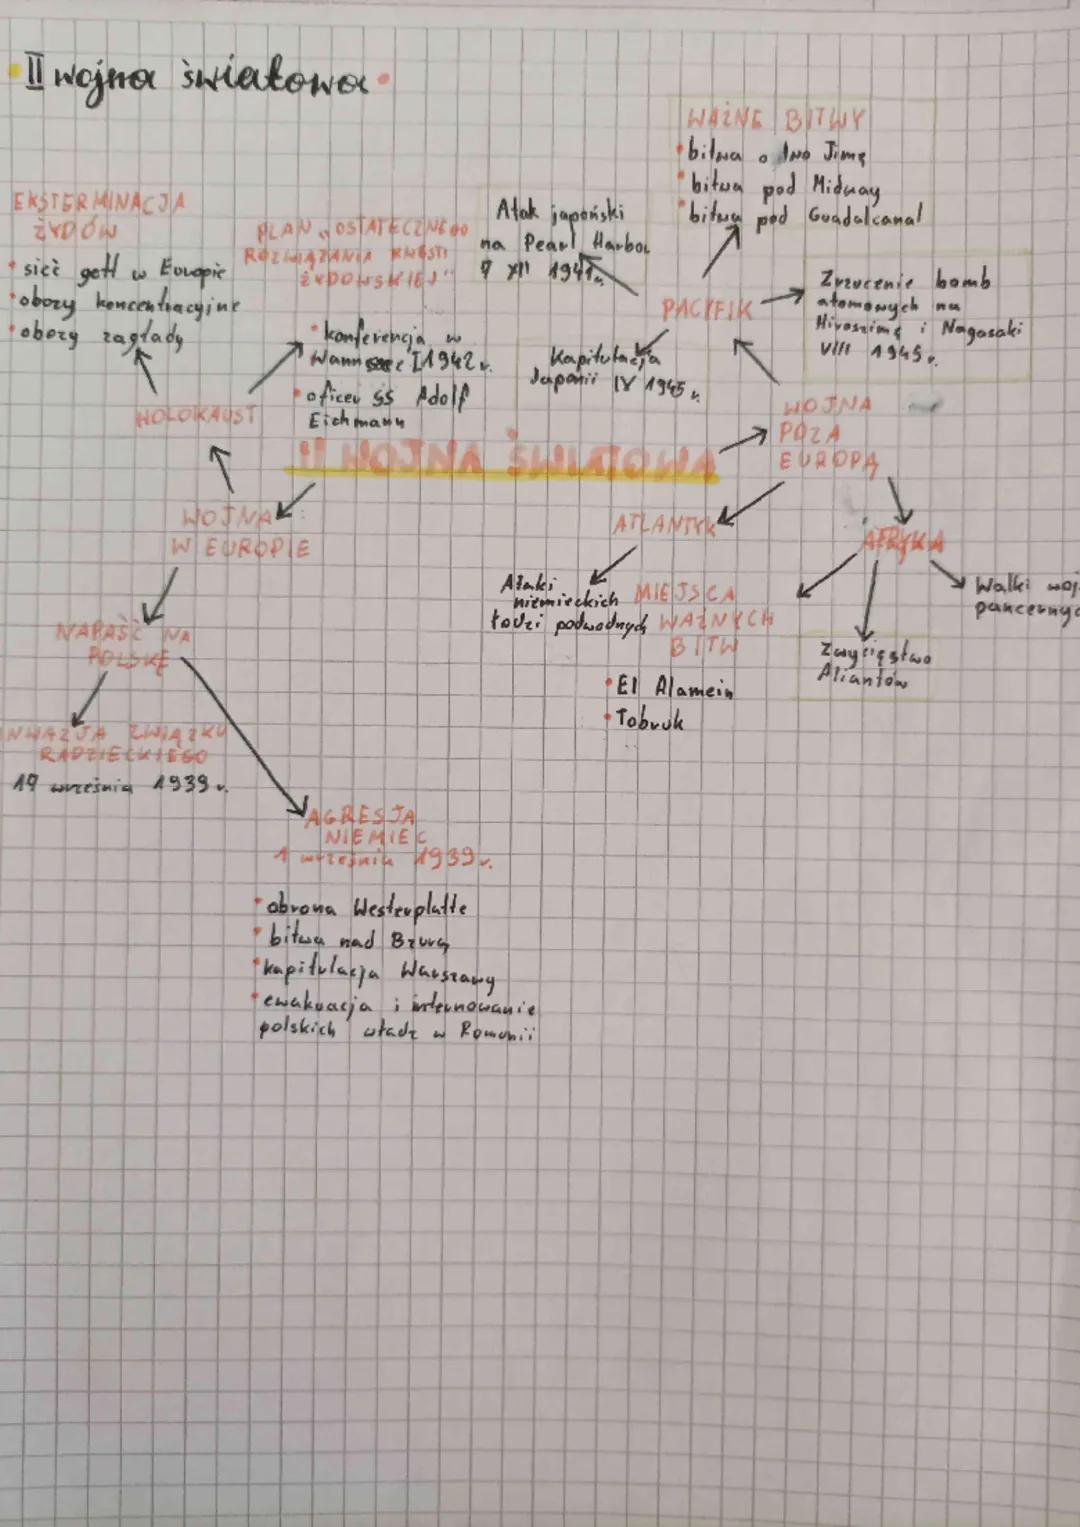 II wojna światowa
WAŻNE BITWY
• bitwa o Iwo Jimę
• bitwa pod Midway
• bitwa pod Guadalcanal
EKSTERMINACJA
ŻYDÓW
• sieć gett w Europie
• obozy koncentracyjne
• obozy zagłady
PLAN „OSTATECZNEGO
ROZWIĄZANIA KWESTII
ŻYDOWSKIEJ"
• konferencja w
Wannsee I 1942 r.
• oficer SS Adolf
Eichmann
Atak japoński
na Pearl Harbor
7 XII 1941r.
PACYFIK
Zrzucenie bomb
atomowych na
Hiroszimę i Nagasaki
VIII 1945r.
Kapitulacja
Japonii IX 1945 r.
HOLOKAUST
WOJNA
POZA
EUROPĄ
II WOJNA ŚWIATOWA
WOJNA
W EUROPIE
ATLANTYK
AFRYKA
Ataki
niemieckich
łodzi podwodnych
MIEJSCA
WAŻNYCH
BITW
• El Alamein
• Tobruk
Zwycięstwo
Aliantów
Walki woj
pancernyc
NAPAŚĆ NA
POLSKĘ
INWAZJA ZWIĄZKU
RADZIECKIEGO
17 września 1939 r.
AGRESJA
NIEMIEC
1 września 1939 r.
• obrona Westerplatte
• bitwa nad Bzurą
• kapitulacja Warszawy
• ewakuacja i internowanie
polskich władz w Rumunii